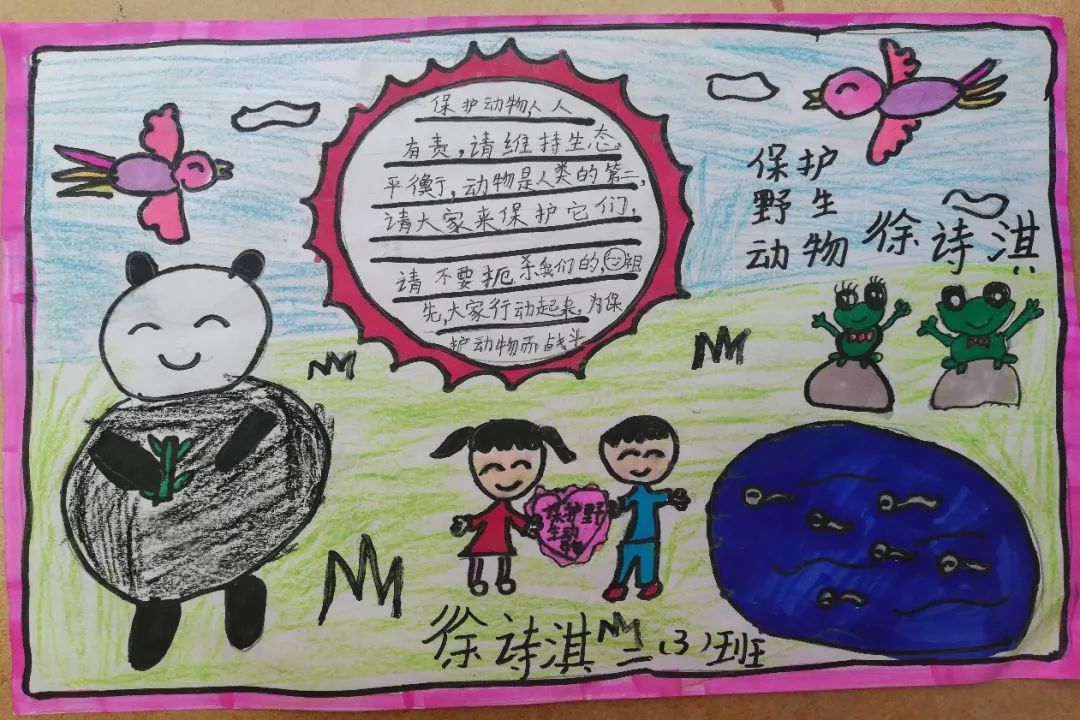 保护动物,人人
有责,请维持生态
平衡,动物是人类的第二,
请大家来保护它们,
请不要扼杀我们的祖
先,大家行动起来,为保
护动物而战斗
保护
野生
动物
徐诗淇
保护野
生动物
徐诗淇二(3)班